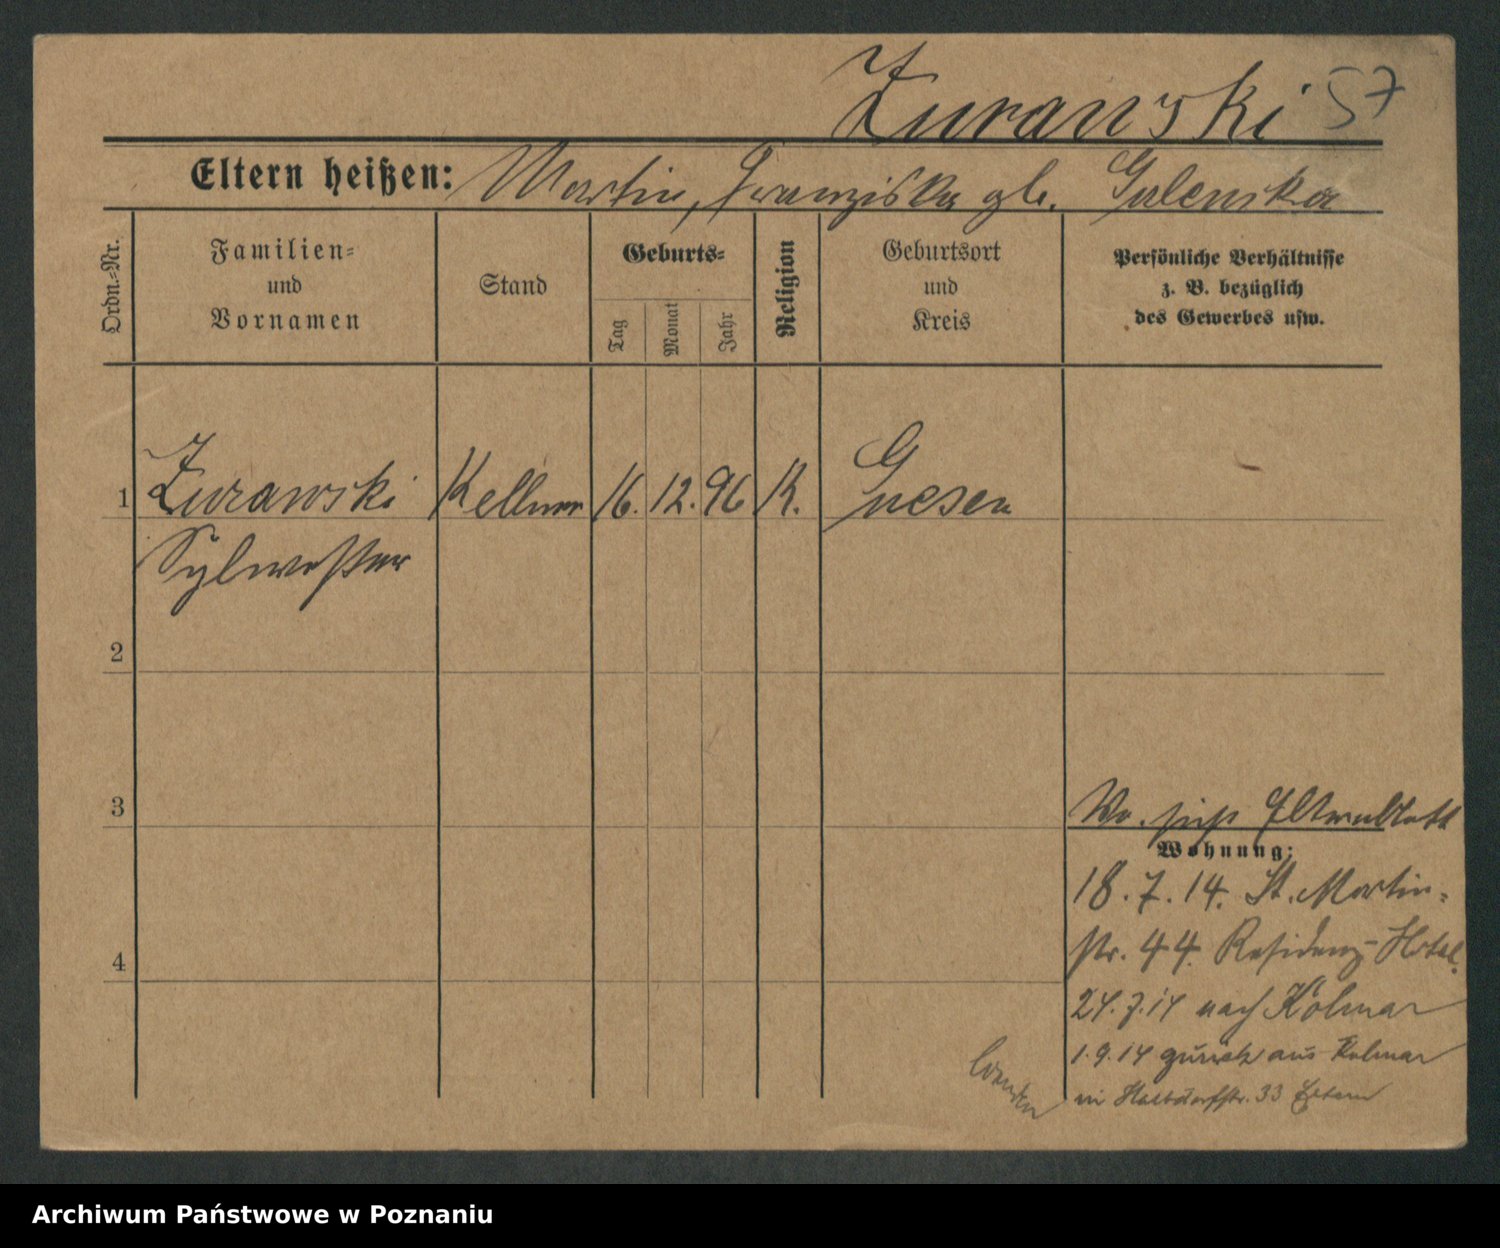 Zurawski 57
Eltern heißen: Martin, Franziska gb. Galenska
Ordn.-Nr.
Familien-
und
Vornamen
Stand
Geburts-
Tag
Monat
Jahr
Religion
Geburtsort
und
Kreis
Persönliche Verhältnisse
z. B. bezüglich
des Gewerbes usw.
1 Zurawski Kellner 16. 12. 96 K. Gnesen
Sylwester
2
3
Wo.
Wohnung:
18.7.14. St. Martin-
str. 44. Residenz-Hotel.
4
24.7.14 nach Kolmar
1.9.14 zurück aus Kolmar
in Halbdorfstr. 33 Eltern
wenden
Archiwum Państwowe w Poznaniu